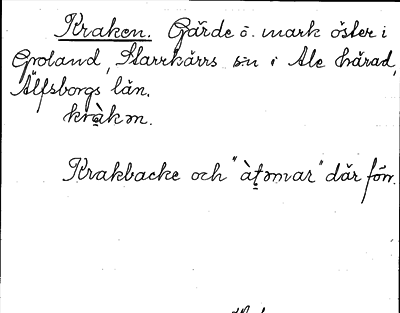 Kraken. Gärde o. mark öster i
Groland, Starrkärrs sn i Ale härad,
Älfsborgs län.
kràkən.
Krakbacke och "àtəmar" där förr.